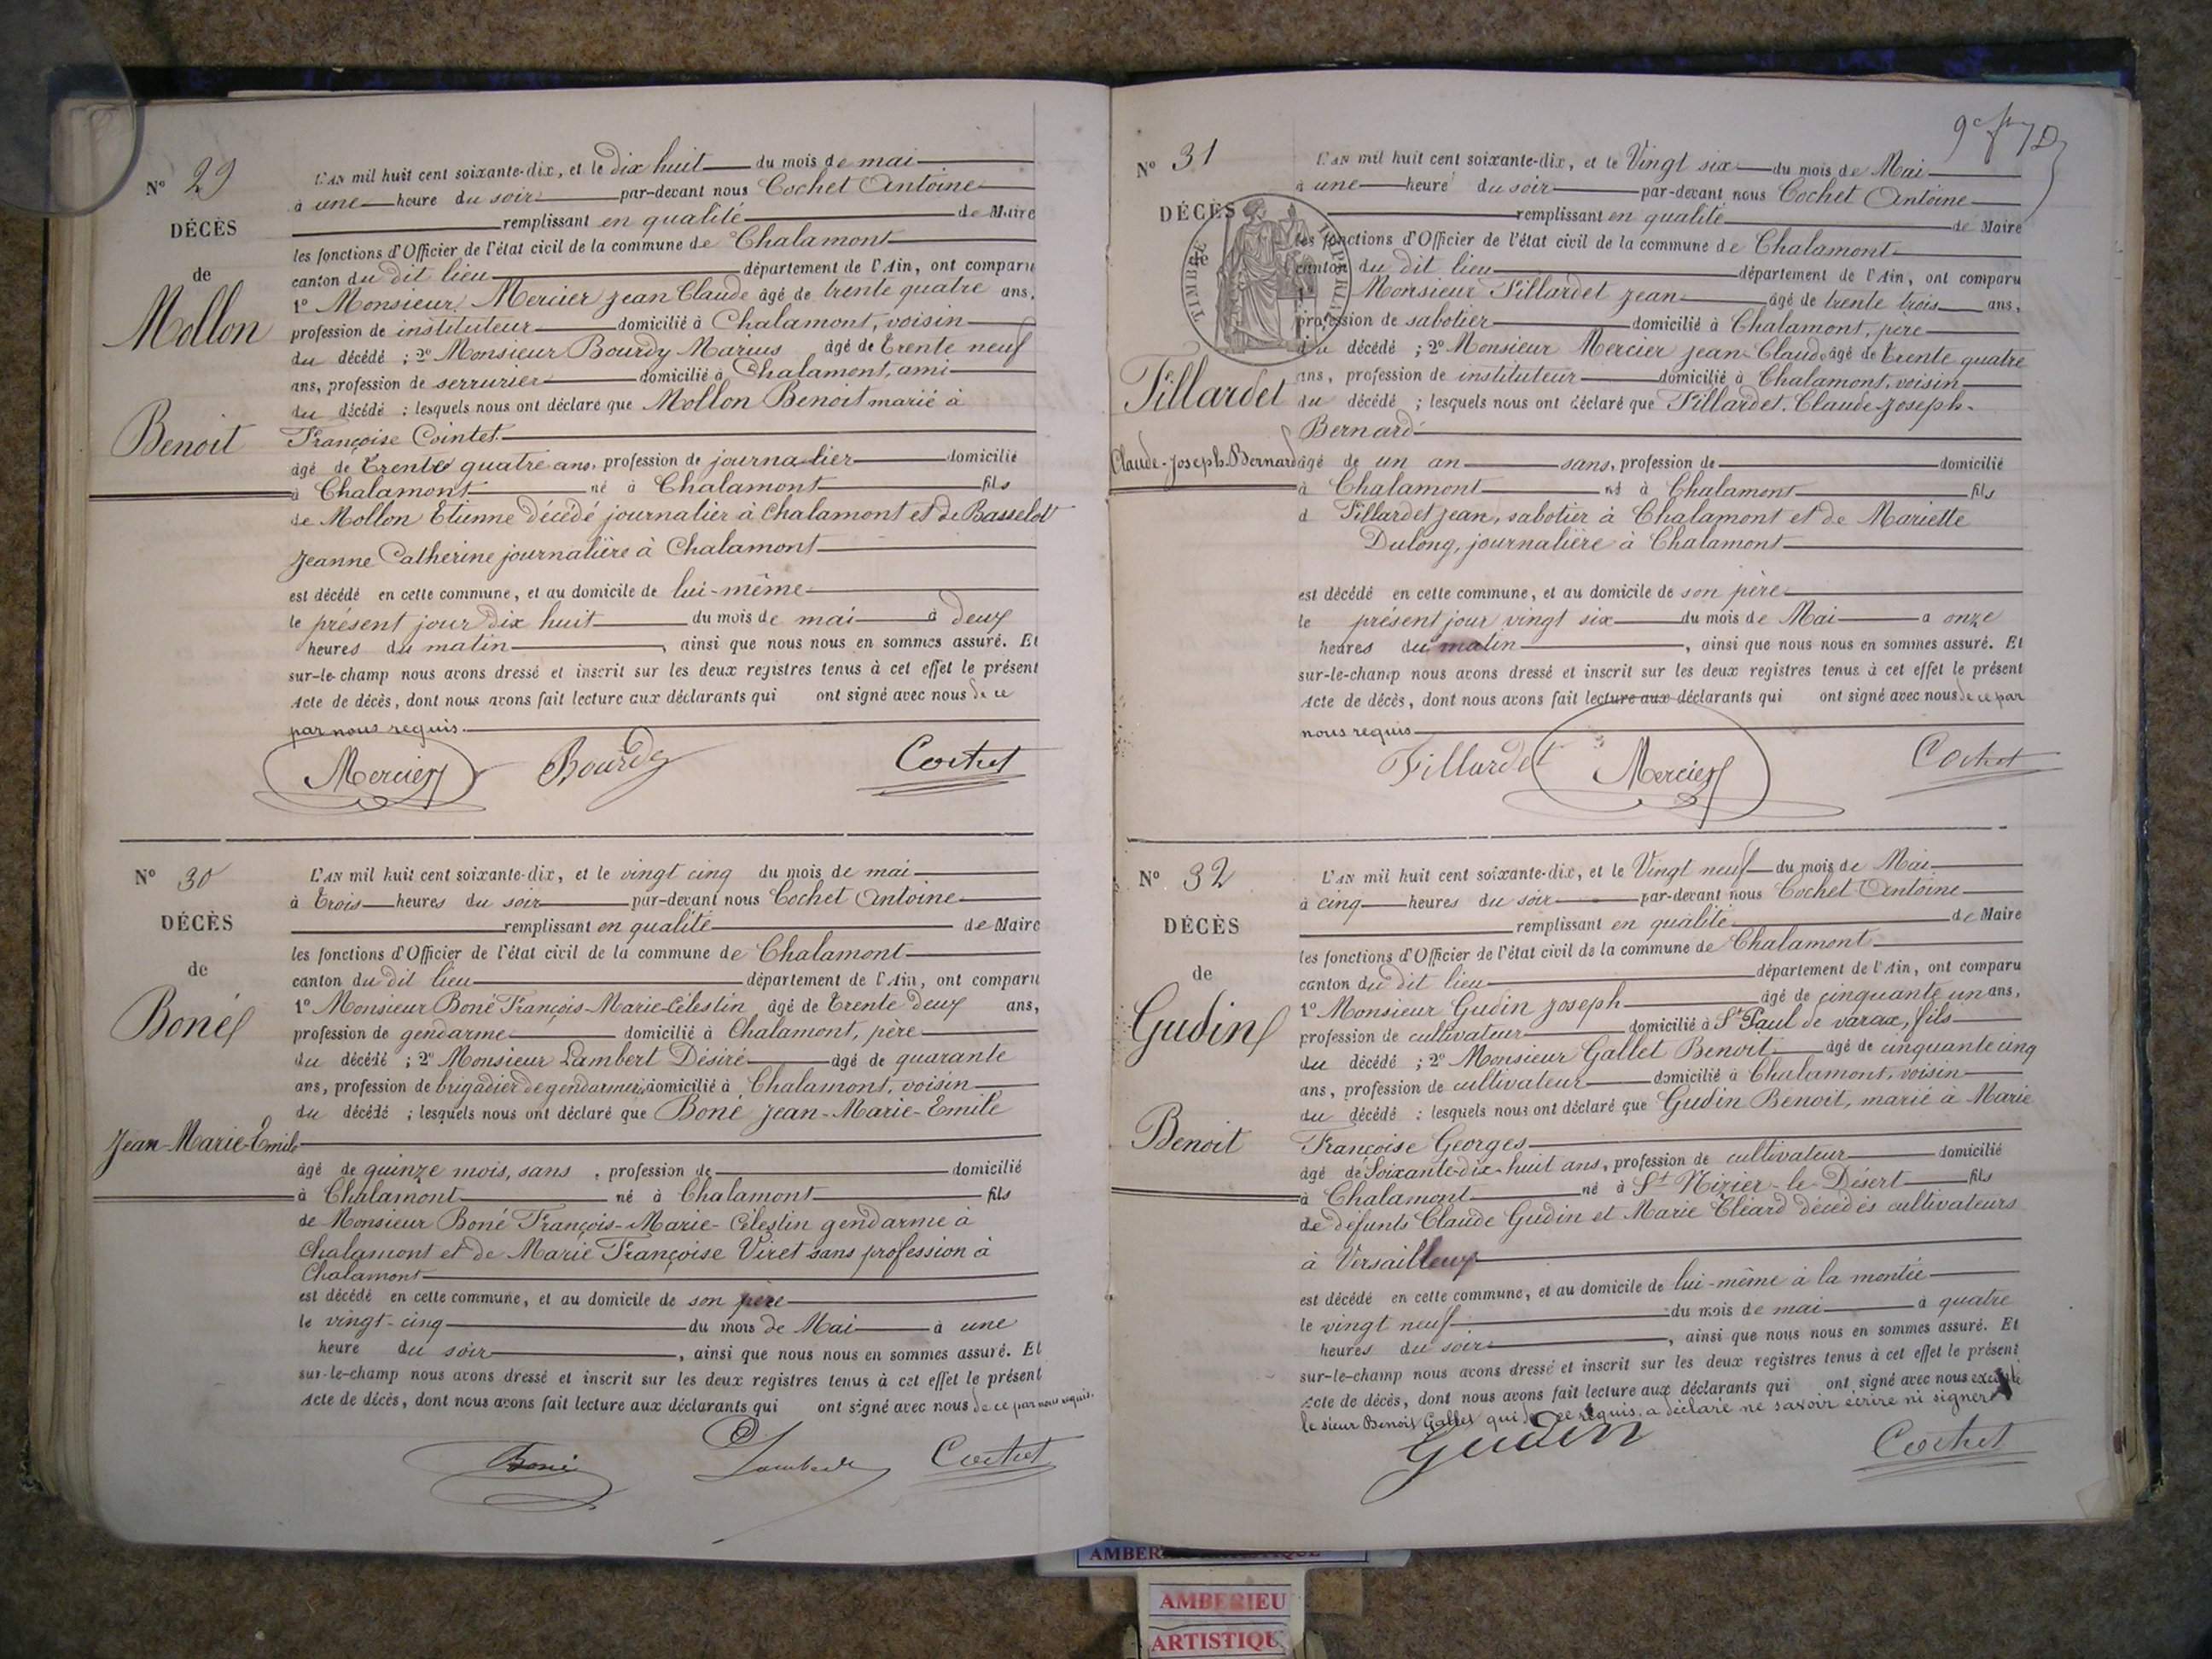 N° 29
DÉCÈS
de
Mollon
Benoit
L'AN mil huit cent soixante-dix, et le Dix huit du mois de mai
à une heure du soir par-devant nous Cochet Antoine
remplissant en qualité de Maire
les fonctions d'Officier de l'état civil de la commune de Chalamont
canton du dit lieu département de l'Ain, ont comparu
1° Monsieur Mercier Jean Claude âgé de trente quatre ans,
profession de instituteur domicilié à Chalamont, voisin
du décédé ; 2° Monsieur Bourdy Marius âgé de trente neuf
ans, profession de serrurier domicilié à Chalamont, ami
du décédé ; lesquels nous ont déclaré que Mollon Benoit marié à
Françoise Cointet
âgé de trente quatre ans, profession de journalier domicilié
à Chalamont né à Chalamont fils
de Mollon Etienne décédé journalier à Chalamont et de Basselot
Jeanne Catherine journalière à Chalamont
est décédé en cette commune, et au domicile de lui-même
le présent jour dix huit du mois de mai à deux
heures du matin, ainsi que nous nous en sommes assuré. Et
sur-le-champ nous avons dressé et inscrit sur les deux registres tenus à cet effet le présent
Acte de décès, dont nous avons fait lecture aux déclarants qui ont signé avec nous de ce
par nous requis.
Mercier Bourdy Cochet
N° 30
DÉCÈS
de
Boné
Jean-Marie-Emile
L'AN mil huit cent soixante-dix, et le vingt cinq du mois de mai
à trois heures du soir par-devant nous Cochet Antoine
remplissant en qualité de Maire
les fonctions d'Officier de l'état civil de la commune de Chalamont
canton du dit lieu département de l'Ain, ont comparu
1° Monsieur Boné François-Marie-Célestin âgé de trente deux ans,
profession de gendarme domicilié à Chalamont, père
du décédé ; 2° Monsieur Lambert Désiré âgé de quarante
ans, profession de brigadier de gendarmerie domicilié à Chalamont, voisin
du décédé ; lesquels nous ont déclaré que Boné Jean-Marie-Emile
âgé de quinze mois, sans, profession de domicilié
à Chalamont né à Chalamont fils
de Monsieur Boné François-Marie-Célestin gendarme à
Chalamont et de Marie Françoise Viret sans profession à
Chalamont
est décédé en cette commune, et au domicile de son père
le vingt-cinq du mois de Mai à une
heure du soir, ainsi que nous nous en sommes assuré. Et
sur-le-champ nous avons dressé et inscrit sur les deux registres tenus à cet effet le présent
Acte de décès, dont nous avons fait lecture aux déclarants qui ont signé avec nous de ce par nous requis.
Boné Lambert Cochet
N° 31
DÉCÈS
de
TIMBRE IMPERIAL
Tillardet
Claude-Joseph-Bernard
L'AN mil huit cent soixante-dix, et le Vingt six du mois de Mai
à une heure du soir par-devant nous Cochet Antoine
remplissant en qualité de Maire
les fonctions d'Officier de l'état civil de la commune de Chalamont
canton du dit lieu département de l'Ain, ont comparu
1° Monsieur Tillardet Jean âgé de trente trois ans,
profession de sabotier domicilié à Chalamont, père
du décédé ; 2° Monsieur Mercier Jean-Claude âgé de trente quatre
ans, profession de instituteur domicilié à Chalamont, voisin
du décédé ; lesquels nous ont déclaré que Tillardet Claude-Joseph-
Bernard
âgé de un an sans, profession de domicilié
à Chalamont né à Chalamont fils
d Tillardet Jean, sabotier à Chalamont et de Mariette
Dulong, journalière à Chalamont
est décédé en cette commune, et au domicile de son père
le présent jour vingt six du mois de Mai à onze
heures du matin, ainsi que nous nous en sommes assuré. Et
sur-le-champ nous avons dressé et inscrit sur les deux registres tenus à cet effet le présent
Acte de décès, dont nous avons fait lecture aux déclarants qui ont signé avec nous de ce par
nous requis
Tillardet Mercier Cochet
N° 32
DÉCÈS
de
Gudin
Benoit
L'AN mil huit cent soixante-dix, et le Vingt neuf du mois de Mai
à cinq heures du soir par-devant nous Cochet Antoine
remplissant en qualité de Maire
les fonctions d'Officier de l'état civil de la commune de Chalamont
canton du dit lieu département de l'Ain, ont comparu
1° Monsieur Gudin Joseph âgé de cinquante un ans,
profession de cultivateur domicilié à St Paul de varax, fils
du décédé ; 2° Monsieur Gallet Benoit âgé de cinquante cinq
ans, profession de cultivateur domicilié à Chalamont, voisin
du décédé ; lesquels nous ont déclaré que Gudin Benoit, marié à Marie
Françoise Georges
âgé de Soixante-dix-huit ans, profession de cultivateur domicilié
à Chalamont né à St Nizier-le-Désert fils
de défunts Claude Gudin et Marie Eléard décédés cultivateurs
à Versailleux
est décédé en cette commune, et au domicile de lui-même à la montée
le vingt neuf du mois de mai à quatre
heures du soir, ainsi que nous nous en sommes assuré. Et
sur-le-champ nous avons dressé et inscrit sur les deux registres tenus à cet effet le présent
Acte de décès, dont nous avons fait lecture aux déclarants qui ont signé avec nous excepté
le sieur Benoit Gallet qui de ce requis, a déclaré ne savoir écrire ni signer
Gudin Cochet
AMBERIEU
ARTISTIQU